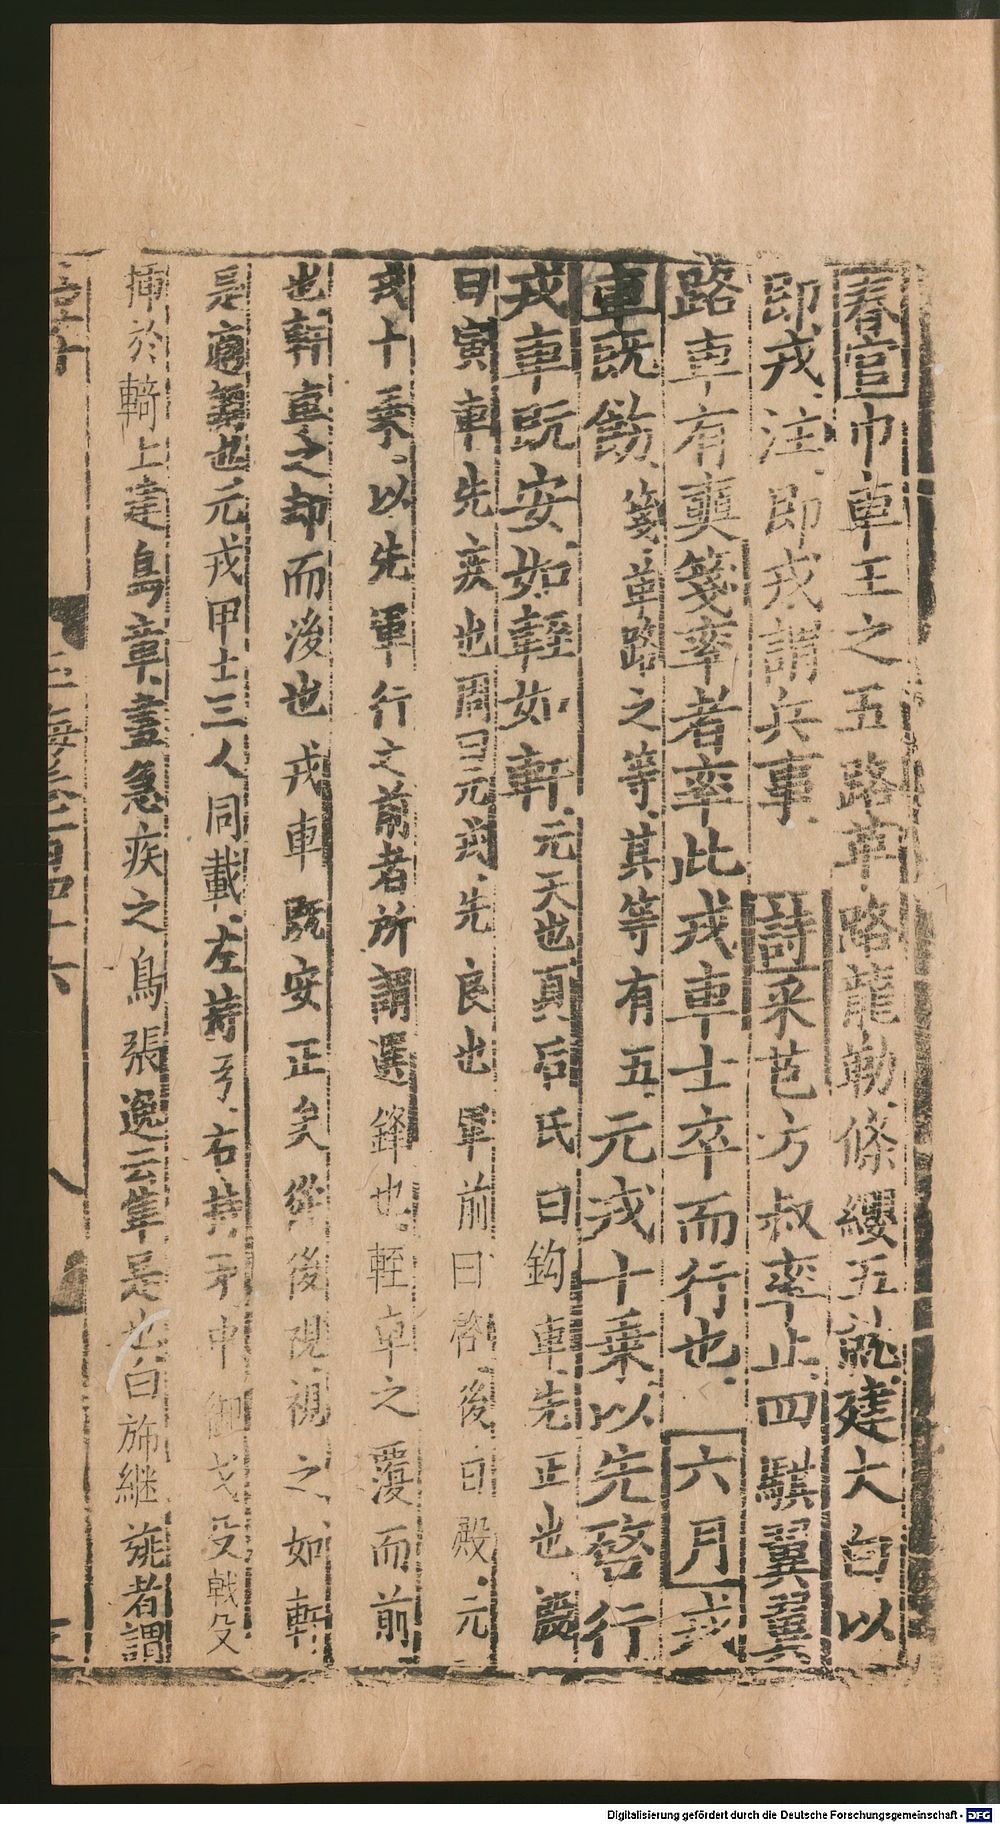 春官巾車王之五路革路龍勒條纓五就建大白以
即戎注即戎謂兵事 詩采芑方叔率止四騏翼翼
路車有奭箋率者率此戎車士卒而行也 六月戎
車既飭箋革路之等其等有五元戎十乗以先啓行
戎車既安如輊如軒元大也夏后氏曰鈎車先正也殷
曰寅車先疾也周曰元戎先良也軍前曰啓後曰殿元
戎十乗以先軍行之前者所謂選鋒也輊車之覆而前
也軒車之却而後也戎車既安正矣從後視之如輊
是適調也元戎甲士三人同載左持弓右持矛中御戈殳戟
插於輢上達鳥章畫急疾之鳥張逸云隼是也白旆継旐者謂
玉海卷一百四十六
Digitalisierung gefördert durch die Deutsche Forschungsgemeinschaft - DFG